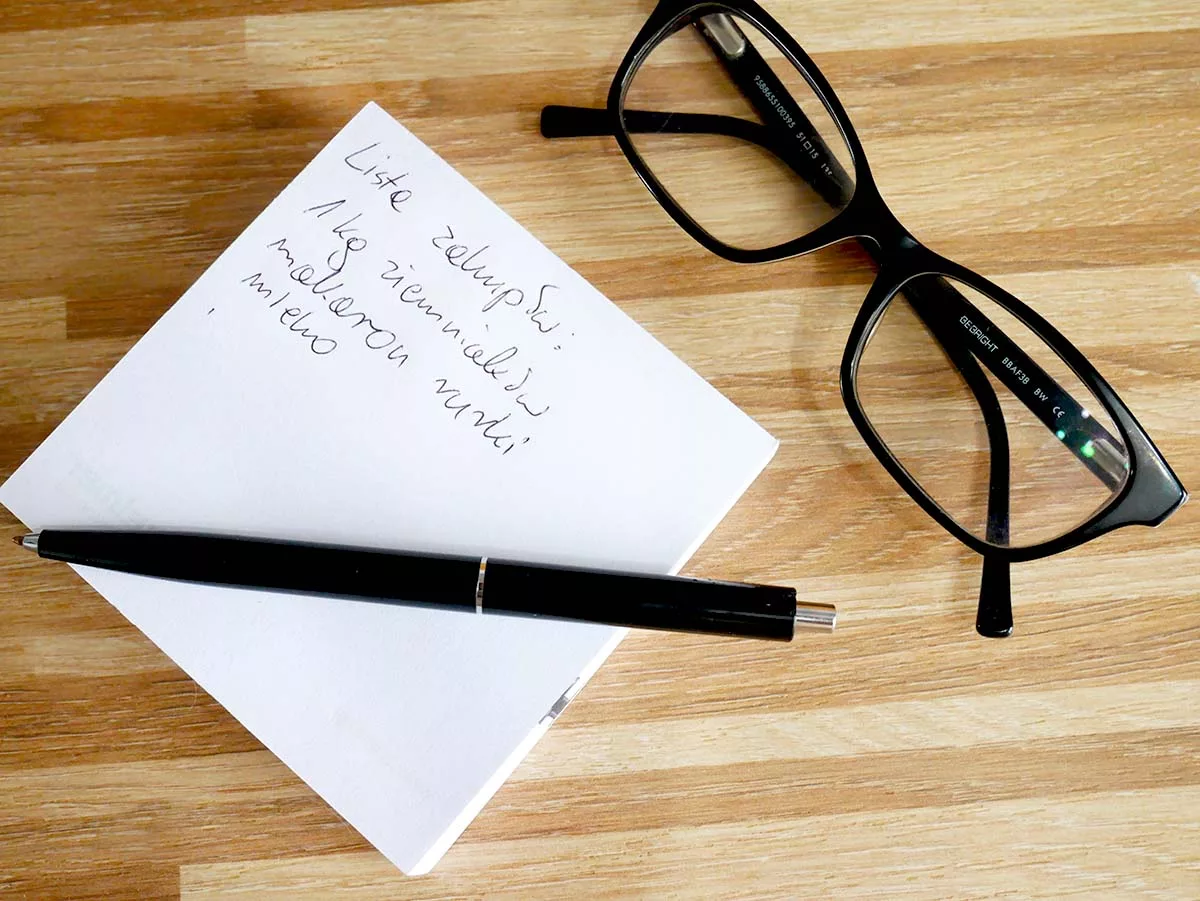 Lista zakupów:
1kg ziemniaków
makaron rurki
mleko
9588655100395 51□15 135
BEBRIGHT BBAF38 BW CE